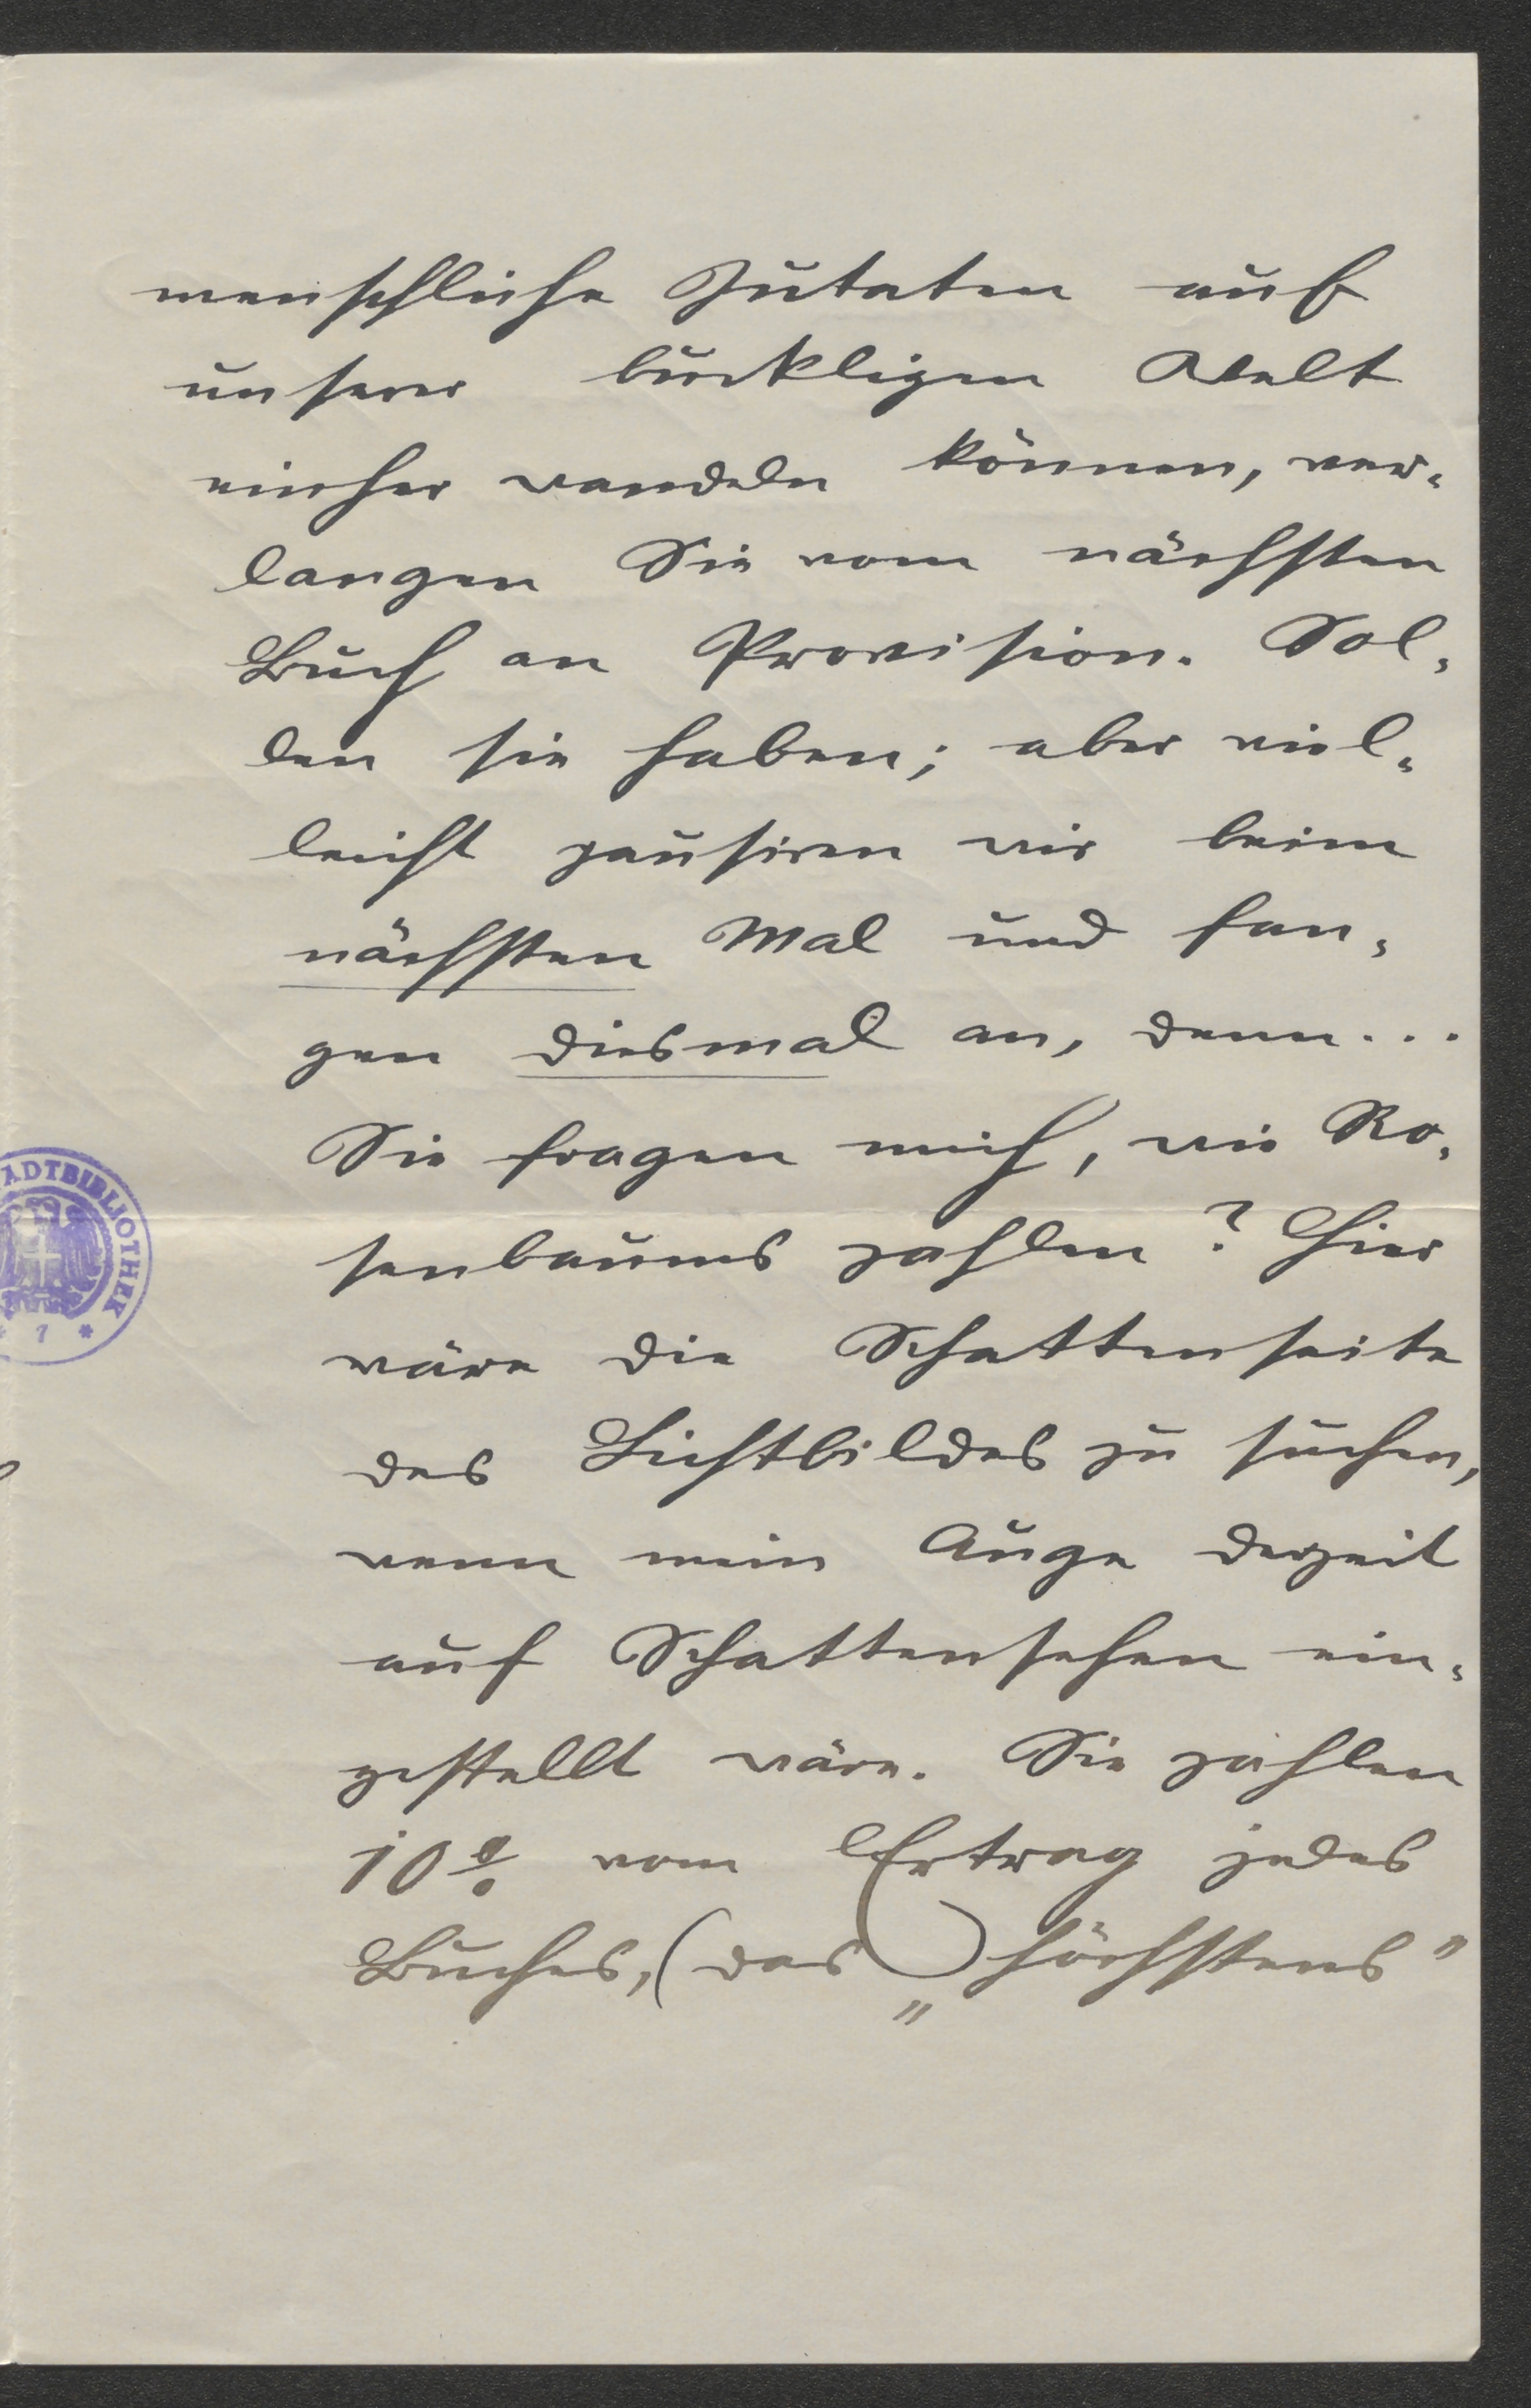 menschliche Zutaten auf
unserer buckligen Welt
einher wandeln können, ver-
langen Sie vom nächsten
Buch an Provision. Sol-
len sie haben; aber viel-
leicht pausiren wir beim
nächsten Mal und fan-
gen diesmal an, denn...
Sie fragen mich, wie Ro-
senbaums zahlen? Hier
wäre die Schattenseite
des Lichtbildes zu suchen,
wenn mein Auge derzeit
auf Schattensehen ein-
gestellt wäre. Sie zahlen
10% vom Ertrag jedes
Buches, (das) „höchstens"
ADTBIBLIOTHEK
* 7 *